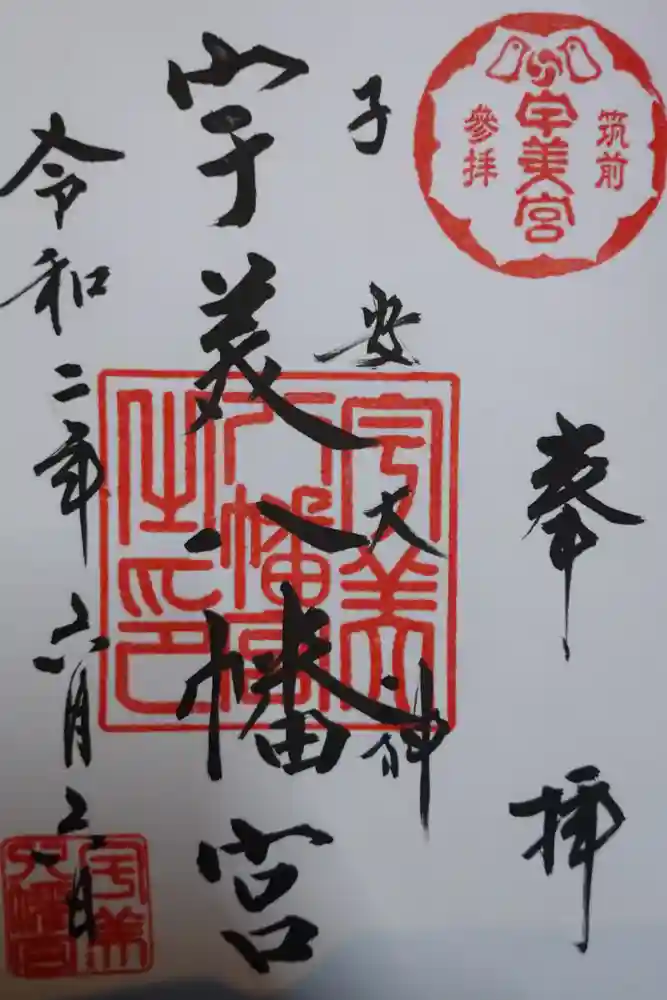 筑前
宇美宮
參拝
奉拝
子安大神
宇美八幡宮
令和二年六月六日
宇美
八幡宮
之印
宇美
八幡宮